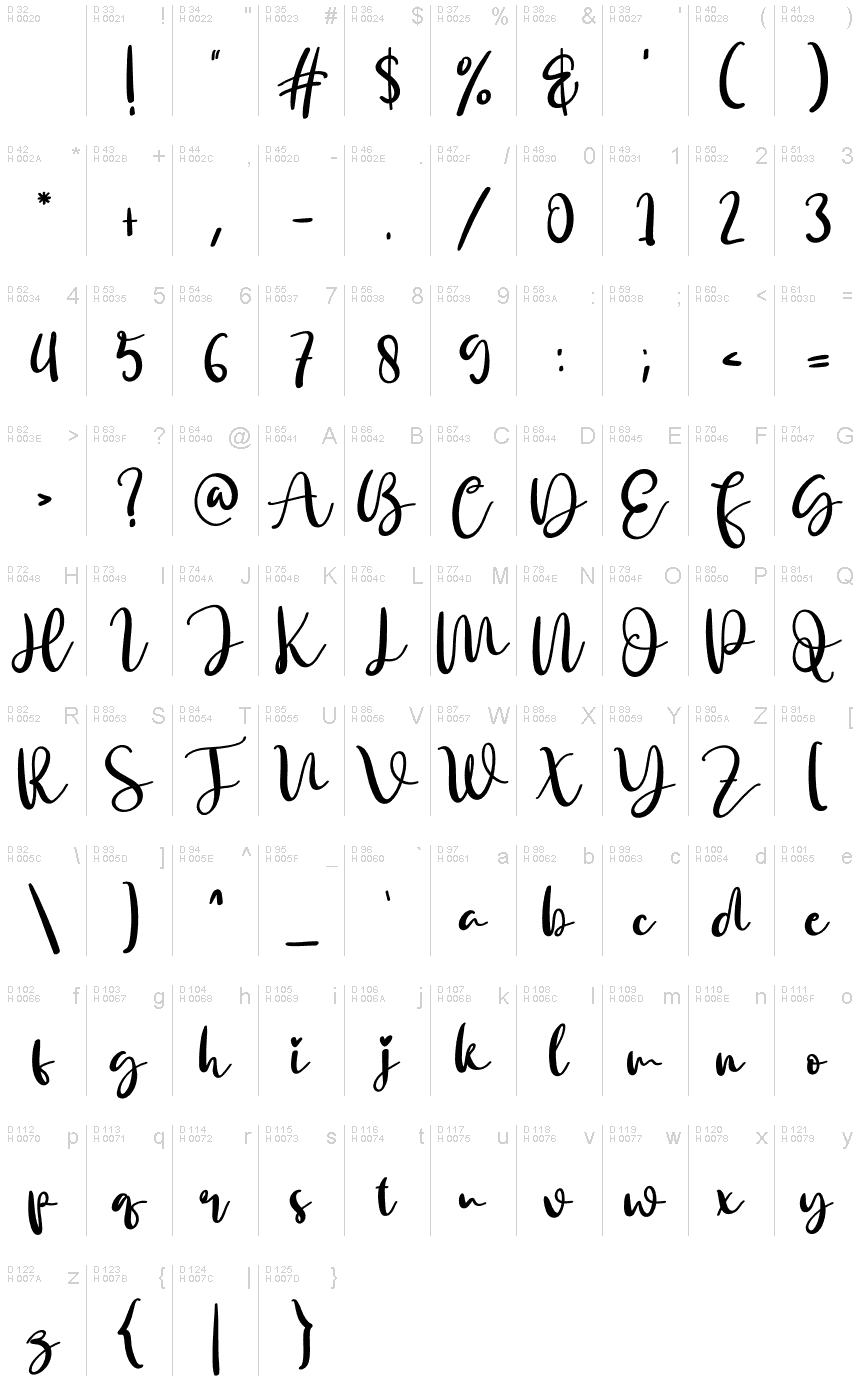 D 32 H 0020 D 33 H 0021 ! D 34 H 0022 " D 35 H 0023 # D 36 H 0024 $ D 37 H 0025 % D 38 H 0026 & D 39 H 0027 ' D 40 H 0028 ( D 41 H 0029 )
! " # $ % & ' ( )
D 42 H 002A * D 43 H 002B + D 44 H 002C , D 45 H 002D - D 46 H 002E . D 47 H 002F / D 48 H 0030 0 D 49 H 0031 1 D 50 H 0032 2 D 51 H 0033 3
* + , - . / 0 1 2 3
D 52 H 0034 4 D 53 H 0035 5 D 54 H 0036 6 D 55 H 0037 7 D 56 H 0038 8 D 57 H 0039 9 D 58 H 003A : D 59 H 003B ; D 60 H 003C < D 61 H 003D =
4 5 6 7 8 9 : ; < =
D 62 H 003E > D 63 H 003F ? D 64 H 0040 @ D 65 H 0041 A D 66 H 0042 B D 67 H 0043 C D 68 H 0044 D D 69 H 0045 E D 70 H 0046 F D 71 H 0047 G
> ? @ A B C D E F G
D 72 H 0048 H D 73 H 0049 I D 74 H 004A J D 75 H 004B K D 76 H 004C L D 77 H 004D M D 78 H 004E N D 79 H 004F O D 80 H 0050 P D 81 H 0051 Q
H I J K L M N O P Q
D 82 H 0052 R D 83 H 0053 S D 84 H 0054 T D 85 H 0055 U D 86 H 0056 V D 87 H 0057 W D 88 H 0058 X D 89 H 0059 Y D 90 H 005A Z D 91 H 005B [
R S T U V W X Y Z [
D 92 H 005C \ D 93 H 005D ] D 94 H 005E ^ D 95 H 005F _ D 96 H 0060 ` D 97 H 0061 a D 98 H 0062 b D 99 H 0063 c D 100 H 0064 d D 101 H 0065 e
\ ] ^ _ ` a b c d e
D 102 H 0066 f D 103 H 0067 g D 104 H 0068 h D 105 H 0069 i D 106 H 006A j D 107 H 006B k D 108 H 006C l D 109 H 006D m D 110 H 006E n D 111 H 006F o
f g h i j k l m n o
D 112 H 0070 p D 113 H 0071 q D 114 H 0072 r D 115 H 0073 s D 116 H 0074 t D 117 H 0075 u D 118 H 0076 v D 119 H 0077 w D 120 H 0078 x D 121 H 0079 y
p q r s t u v w x y
D 122 H 007A z D 123 H 007B { D 124 H 007C | D 125 H 007D }
z { | }